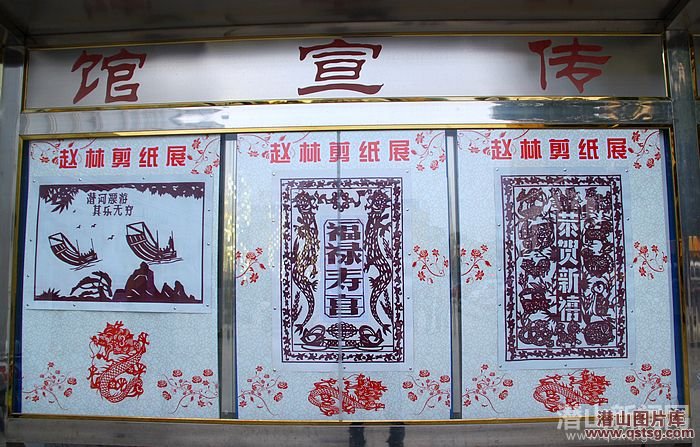 馆 宣 传
赵林剪纸展
潜河漂游
其乐无穷
赵林剪纸展
福禄寿喜
赵林剪纸展
恭贺新禧
潜山图片库
www.qstsg.com